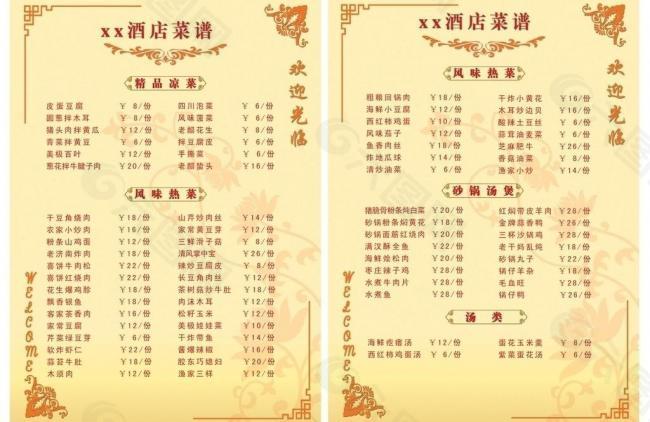 xx酒店菜谱
欢迎光临
精品凉菜
皮蛋豆腐 ￥ 8/份 四川泡菜 ￥ 6/份
圆葱拌木耳 ￥ 8/份 风味菠菜 ￥ 6/份
猪头肉拌黄瓜 ￥12/份 老醋花生 ￥ 8/份
青菜拌黄豆 ￥ 6/份 拌豆腐皮 ￥ 6/份
美极百叶 ￥12/份 手撕菜 ￥ 6/份
葱花拌牛腱子肉 ￥20/份 老醋蛰头 ￥16/份
风味热菜
干豆角烧肉 ￥18/份 山芹炒肉丝 ￥14/份
农家小炒肉 ￥16/份 家常黄豆芽 ￥12/份
粉条山鸡面 ￥12/份 三鲜滑子菇 ￥ 8/份
老济南炸肉 ￥18/份 清风掌中宝 ￥26/份
喜饼牛肉松 ￥22/份 辣炒豆腐皮 ￥ 8/份
喜饼红烧肉 ￥22/份 长豆角肉丝 ￥12/份
花生爆鸡胗 ￥18/份 茶树菇炒牛肚 ￥18/份
飘香银鱼 ￥18/份 肉沫木耳 ￥12/份
客家茶香肉 ￥16/份 松籽玉米 ￥12/份
家常豆腐 ￥12/份 美极娃娃菜 ￥10/份
芹菜绿豆芽 ￥ 6/份 干炸带鱼 ￥14/份
软炸虾仁 ￥22/份 酱爆辣椒 ￥16/份
蒜苔牛肚 ￥18/份 胶东巧媳妇 ￥20/份
木须肉 ￥12/份 渔家三样 ￥12/份
WELCOME
xx酒店菜谱
欢迎光临
风味热菜
粗粮回锅肉 ￥18/份 干炸小黄花 ￥16/份
海鲜小豆腐 ￥12/份 木耳炒边贝 ￥16/份
西红柿鸡蛋 ￥10/份 酸辣土豆丝 ￥ 6/份
风味茄子 ￥12/份 蒜茸油麦菜 ￥ 6/份
鱼香肉丝 ￥18/份 芝麻肥牛 ￥26/份
炸地瓜球 ￥14/份 香菇油菜 ￥ 8/份
清炒油菜 ￥ 6/份 渔家小炒 ￥14/份
砂锅汤煲
猪脆骨粉条炖白菜 ￥20/份 红焖带皮羊肉 ￥28/份
砂锅粉条焖黄花 ￥18/份 金牌蒜香鸭 ￥26/份
砂锅面筋红烧肉 ￥20/份 三杯沙锅鸡 ￥28/份
满汉酥全鱼 ￥22/份 老干妈乱炖 ￥18/份
海鲜烩松肉 ￥20/份 砂锅丸子 ￥22/份
枣庄辣子鸡 ￥28/份 锅仔羊杂 ￥18/份
水煮牛肉片 ￥28/份 毛血旺 ￥28/份
水煮鱼 ￥28/份 锅仔鸭 ￥26/份
汤 类
海鲜疙瘩汤 ￥12/份 蛋花玉米羹 ￥ 8/份
西红柿鸡蛋汤 ￥ 6/份 紫菜蛋花汤 ￥ 6/份
WELCOME